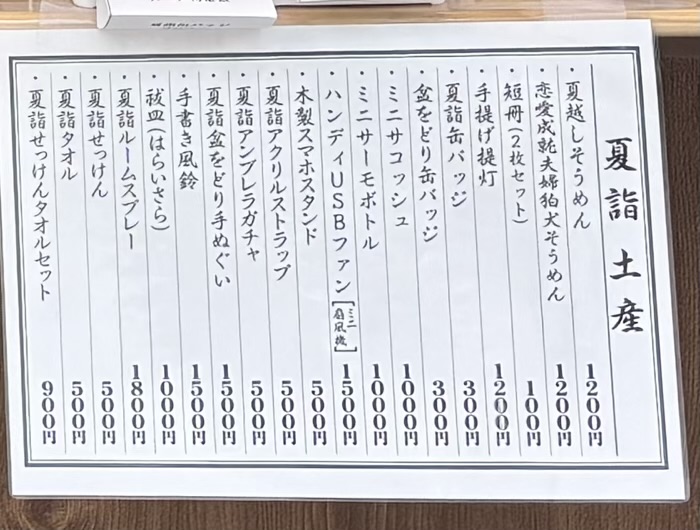 夏詣 土産
・夏越しそうめん 1200円
・恋愛成就夫婦狛犬そうめん 1200円
・短冊(2枚セット) 100円
・手提げ提灯 1200円
・夏詣缶バッジ 300円
・盆をどり缶バッジ 300円
・ミニサコッシュ 1000円
・ミニサーモボトル 1000円
・ハンディUSBファン[ミニ扇風機] 1500円
・木製スマホスタンド 500円
・夏詣アクリルストラップ 500円
・夏詣アンブレラガチャ 500円
・夏詣盆をどり手ぬぐい 1500円
・手書き風鈴 1500円
・祓皿(はらいさら) 1000円
・夏詣ルームスプレー 1800円
・夏詣せっけん 500円
・夏詣タオル 500円
・夏詣せっけんタオルセット 900円